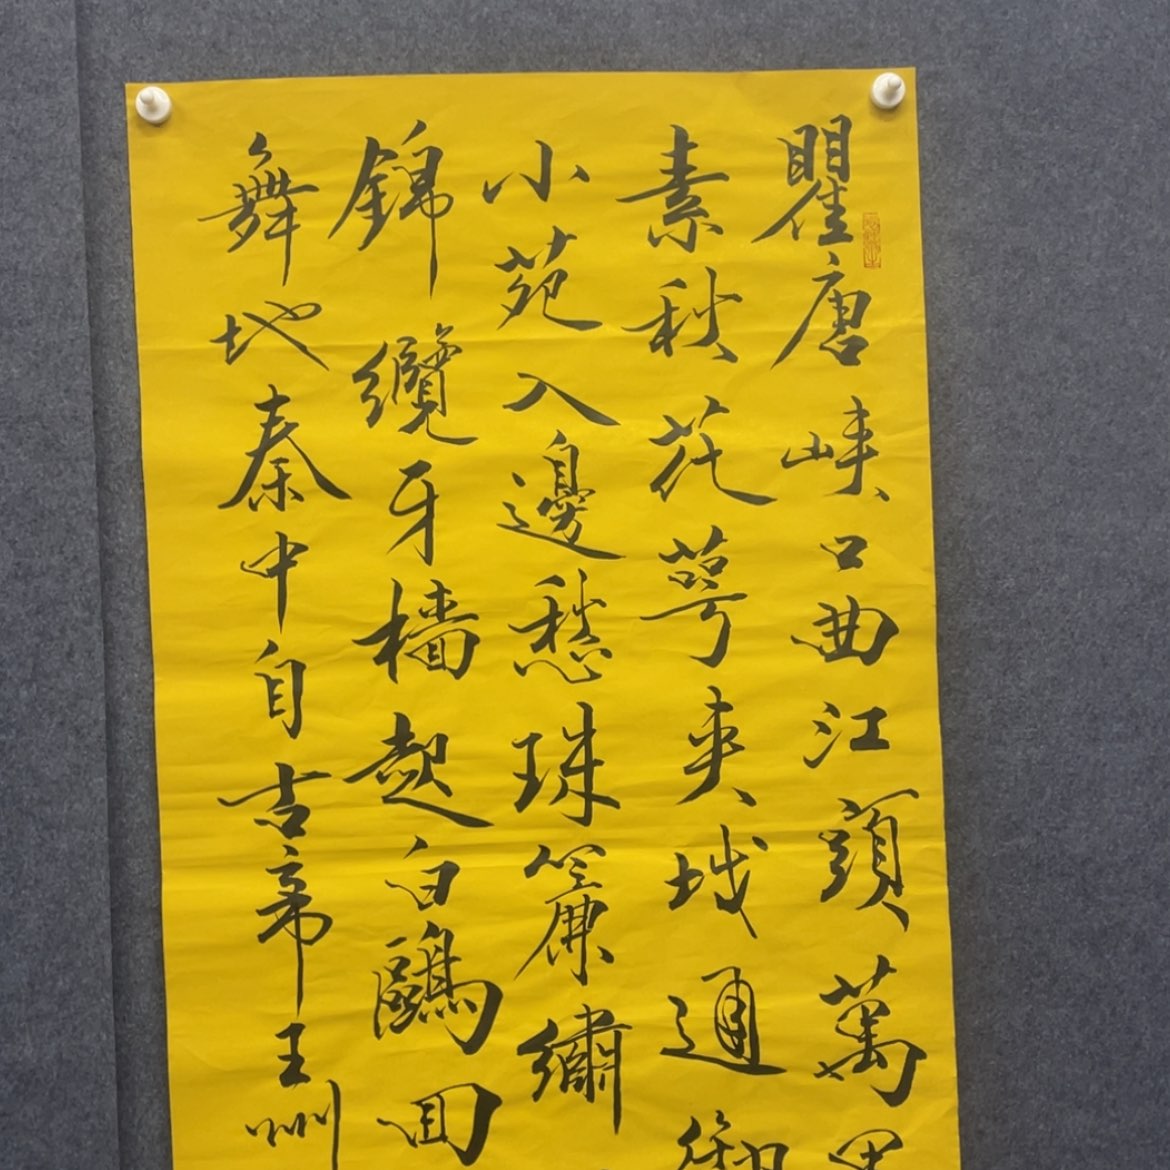 瞿唐峽口曲江頭萬
素秋花萼夾城通御
小苑入邊愁珠簾繡
錦纜牙檣起白鷗回
舞地秦中自古帝王州